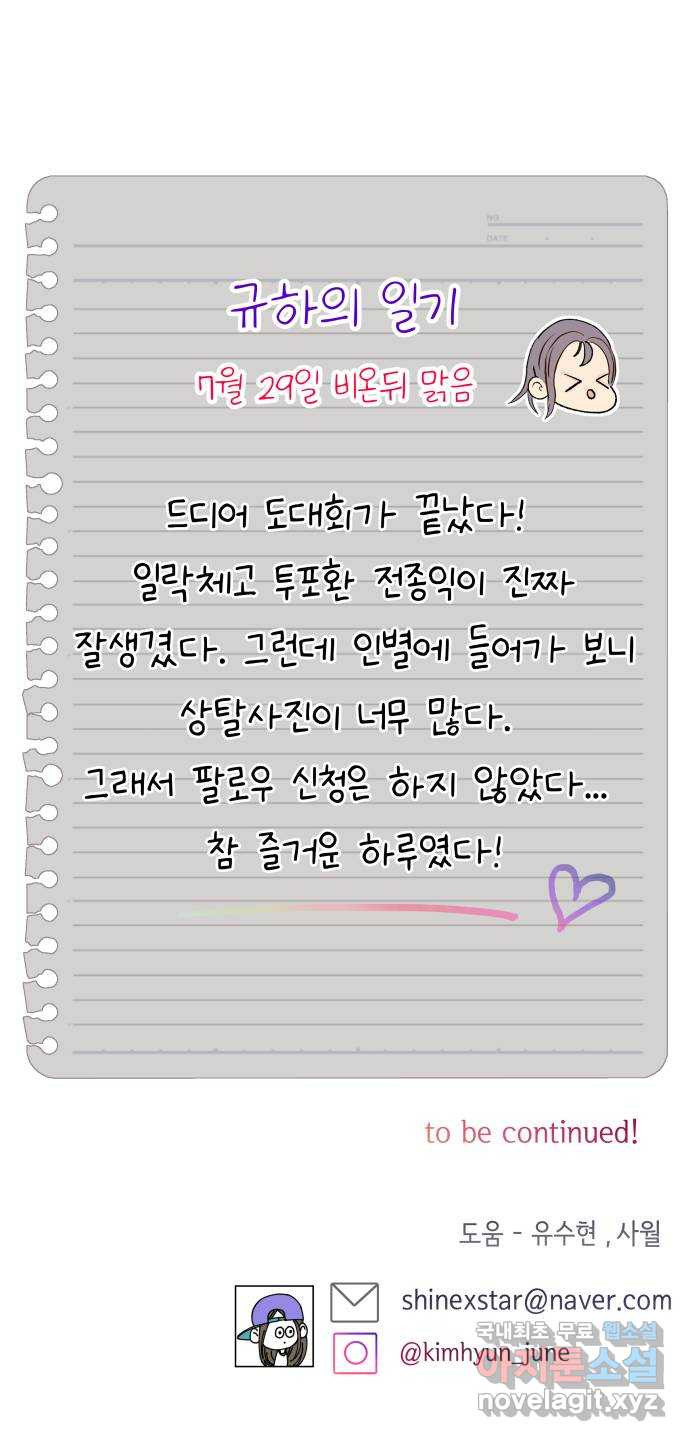 NO
DATE
규하의 일기
7월 29일 비온뒤 맑음
드디어 도대회가 끝났다!
일락체고 투포환 전종익이 진짜
잘생겼다. 그런데 인별에 들어가 보니
상탈사진이 너무 많다.
그래서 팔로우 신청은 하지 않았다...
참 즐거운 하루였다!
to be continued!
도움 - 유수현 , 사월
shinexstar@naver.com
국내최초 무료 웹소설
@kimhyun_june
아지툰소설
novelagit.xyz